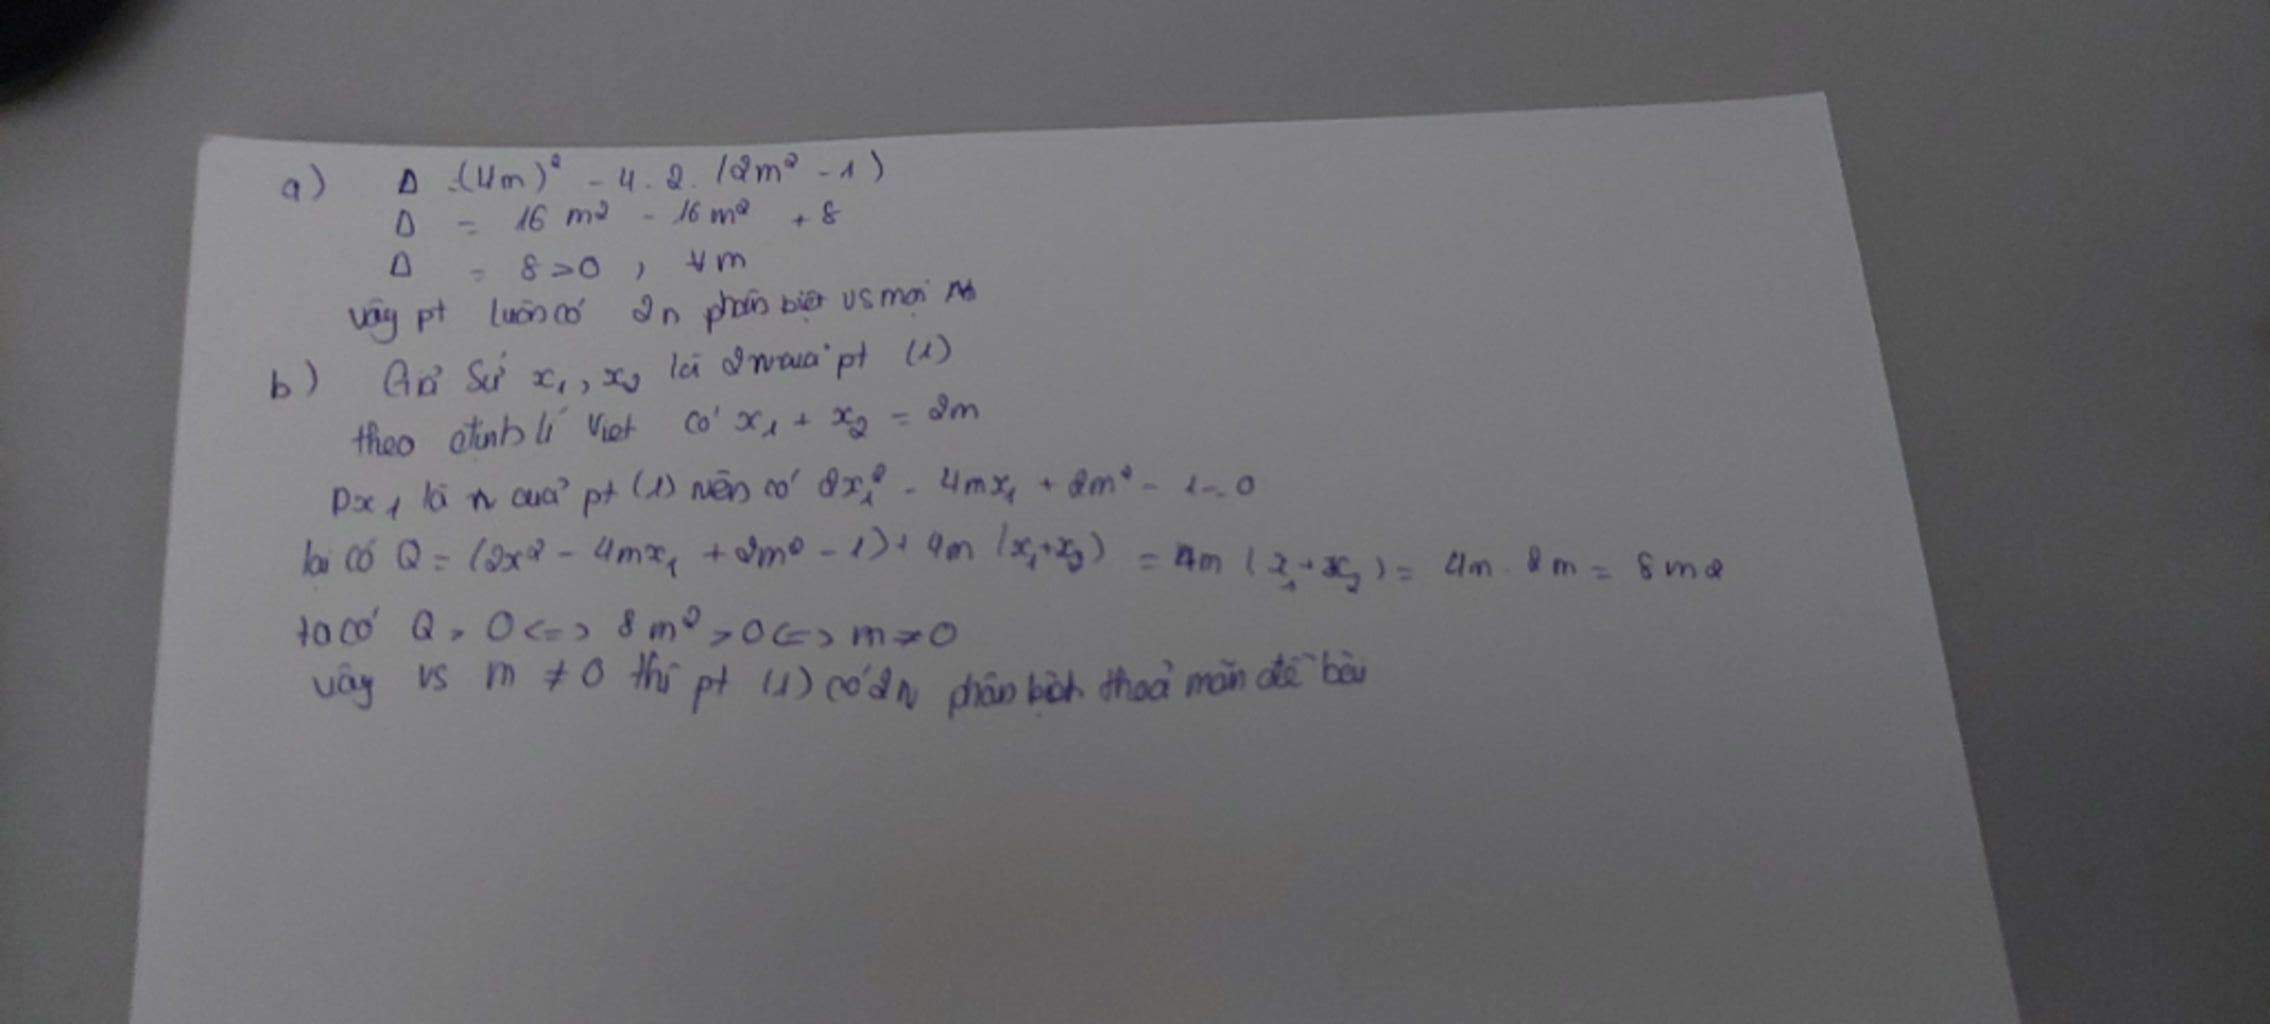 a) Δ = (4m)² - 4. 2. (2m² - 1)
Δ = 16 m² - 16 m² + 8
Δ = 8 > 0 , ∀m
vậy pt luôn có 2n phân biệt vs mọi m
b) Giả Sử x₁, x₂ là 2n của pt (1)
theo định lí Viet có x₁ + x₂ = 2m
Dx₁ là n của pt (1) nên có 2x₁² - 4mx₁ + 2m² - 1 = 0
lại có Q = (2x² - 4mx₁ + 2m² - 1) + 4m (x₁+x₂) = 4m (x₁+x₂) = 4m . 2m = 8m2
ta có Q > 0 <=> 8m² > 0 <=> m ≠ 0
vậy vs m ≠ 0 thì pt (1) có 2n phân biệt thoả mãn đề bài